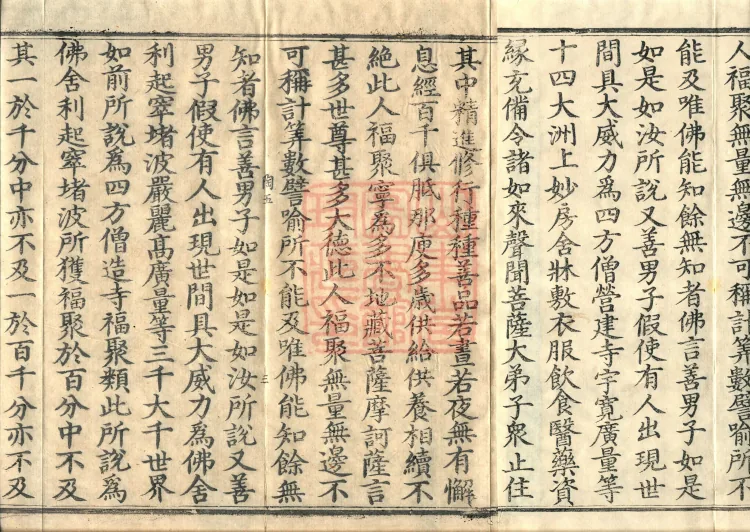 人福聚無量無邊不可稱計算數譬喻所不
能及唯佛能知餘無知者佛言善男子如是
如是如汝所說又善男子假使有人出現世
間具大威力為四方僧營建寺宇寬廣量等
十四大洲上妙房舍牀敷衣服飲食醫藥資
緣充備令諸如來聲聞菩薩大弟子眾止住
其中精進修行種種善品若晝若夜無有懈
息經百千俱胝那庾多歲供給供養相續不
絕此人福聚寧為多不地藏菩薩摩訶薩言
甚多世尊甚多大德此人福聚無量無邊不
可稱計算數譬喻所不能及唯佛能知餘無
陶五
三
知者佛言善男子如是如是如汝所說又善
男子假使有人出現世間具大威力為佛舍
利起窣堵波嚴麗髙廣量等三千大千世界
如前所說為四方僧造寺福聚類此所說為
佛舍利起窣堵波所獲福聚於百分中不及
其一於千分中亦不及一於百千分亦不及